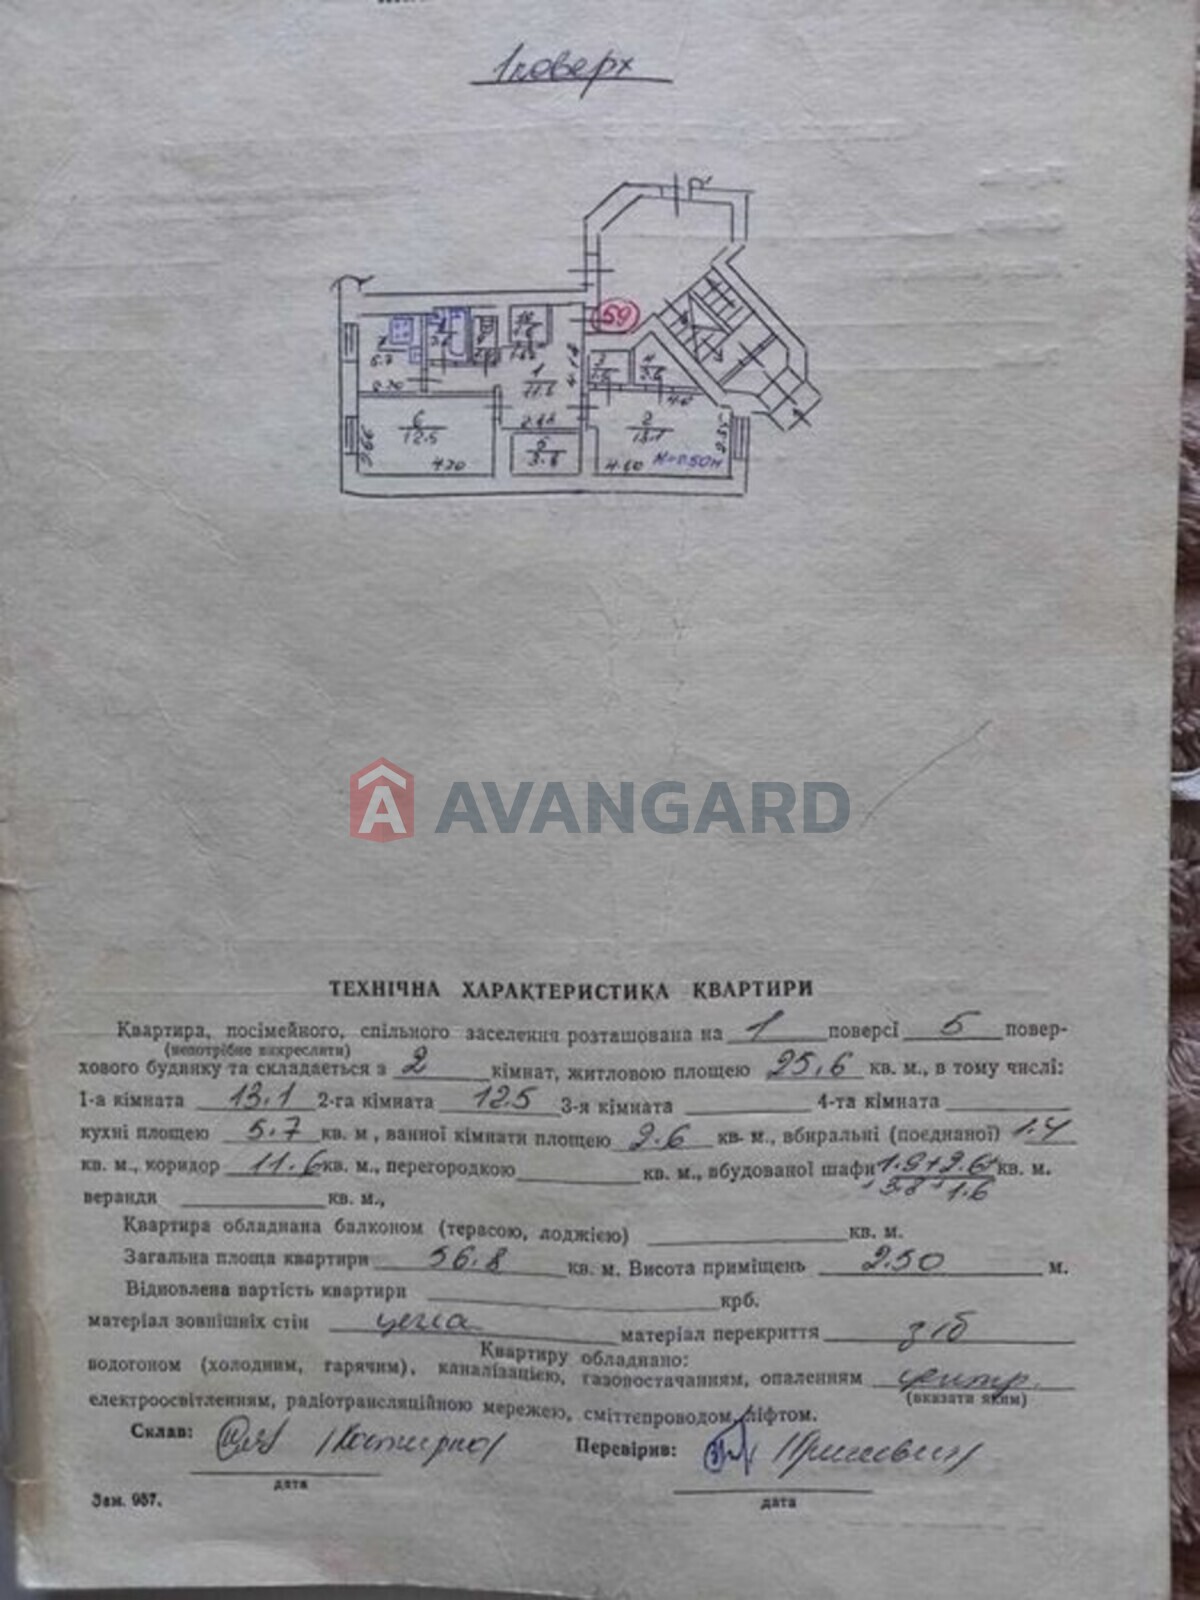 1 поверх
59
1
11.6
2
13.1
4.60
H=2.50м
6
12.5
2.66
4.70
5
3.8
7
5.7
AVANGARD
ТЕХНІЧНА ХАРАКТЕРИСТИКА КВАРТИРИ
Квартира, посімейного, спільного заселення розташована на 1 поверсі 5 повер-
(непотрібне викреслити)
хового будинку та складається з 2 кімнат, житловою площею 25.6 кв. м., в тому числі:
1-а кімната 13.1 2-га кімната 12.5 3-я кімната 4-та кімната
кухні площею 5.7 кв. м., ванної кімнати площею 2.6 кв. м., вбиральні (поєднаної) 1.4
кв. м., коридор 11.6 кв. м., перегородкою кв. м., вбудованої шафи 1.9+2.6+ кв. м.
+3.8+1.6
веранди кв. м.,
Квартира обладнана балконом (терасою, лоджією) кв. м.
Загальна площа квартири 56.8 кв. м. Висота приміщень 2.50 м.
Відновлена вартість квартири крб.
матеріал зовнішніх стін цегла матеріал перекриття з/б
Квартиру обладнано:
водогоном (холодним, гарячим), каналізацією, газопостачанням, опаленням центр.
(вказати яким)
електроосвітленням, радіотрансляційною мережею, сміттєпроводом, ліфтом.
Склав: Перевірив:
дата дата
Зам. 957.